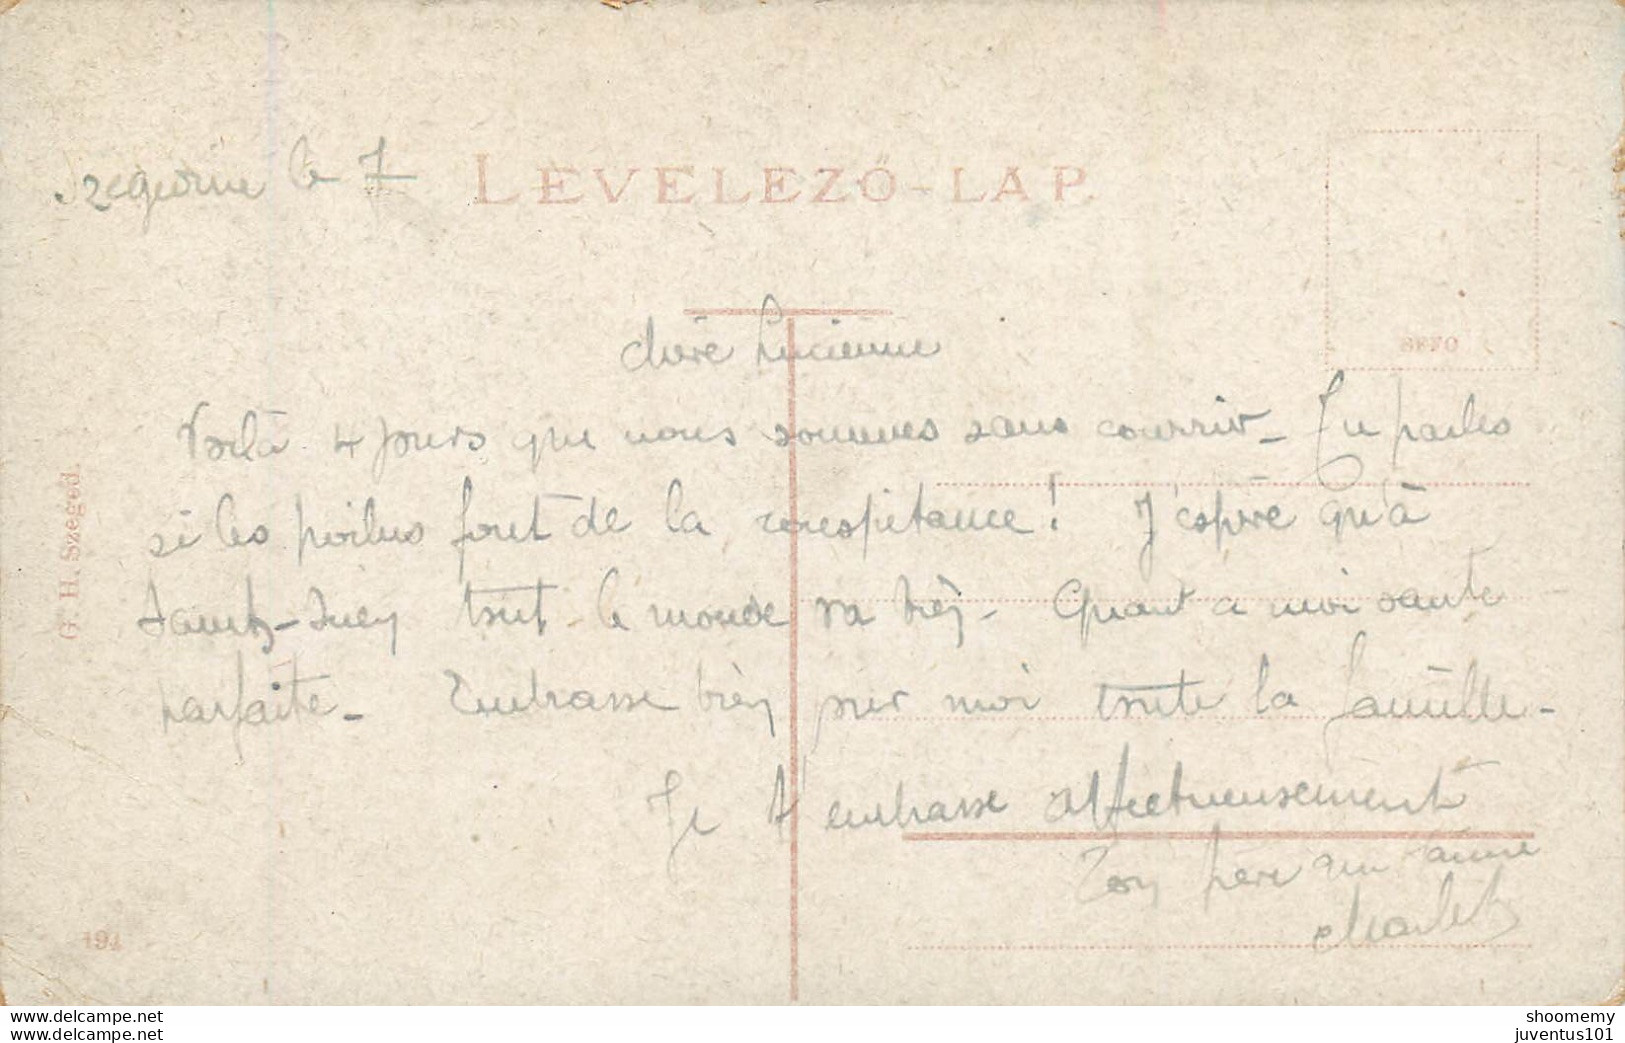 le 7
LEVELEZŐ-LAP.
chère Lucienne
Voilà 4 jours que nous sommes sans courrir - Tu parles
si les poilus font de la rouspétance! J'espère qu'à
tout le monde va bien - Quant a moi sante
parfaite - Embrasse bien pour moi toute la famille -
Je t'embrasse affectueusement
Ton père qui t'aime
G. H. Szeged.
www.delcampe.net
www.delcampe.net
shoomemy
juventus101